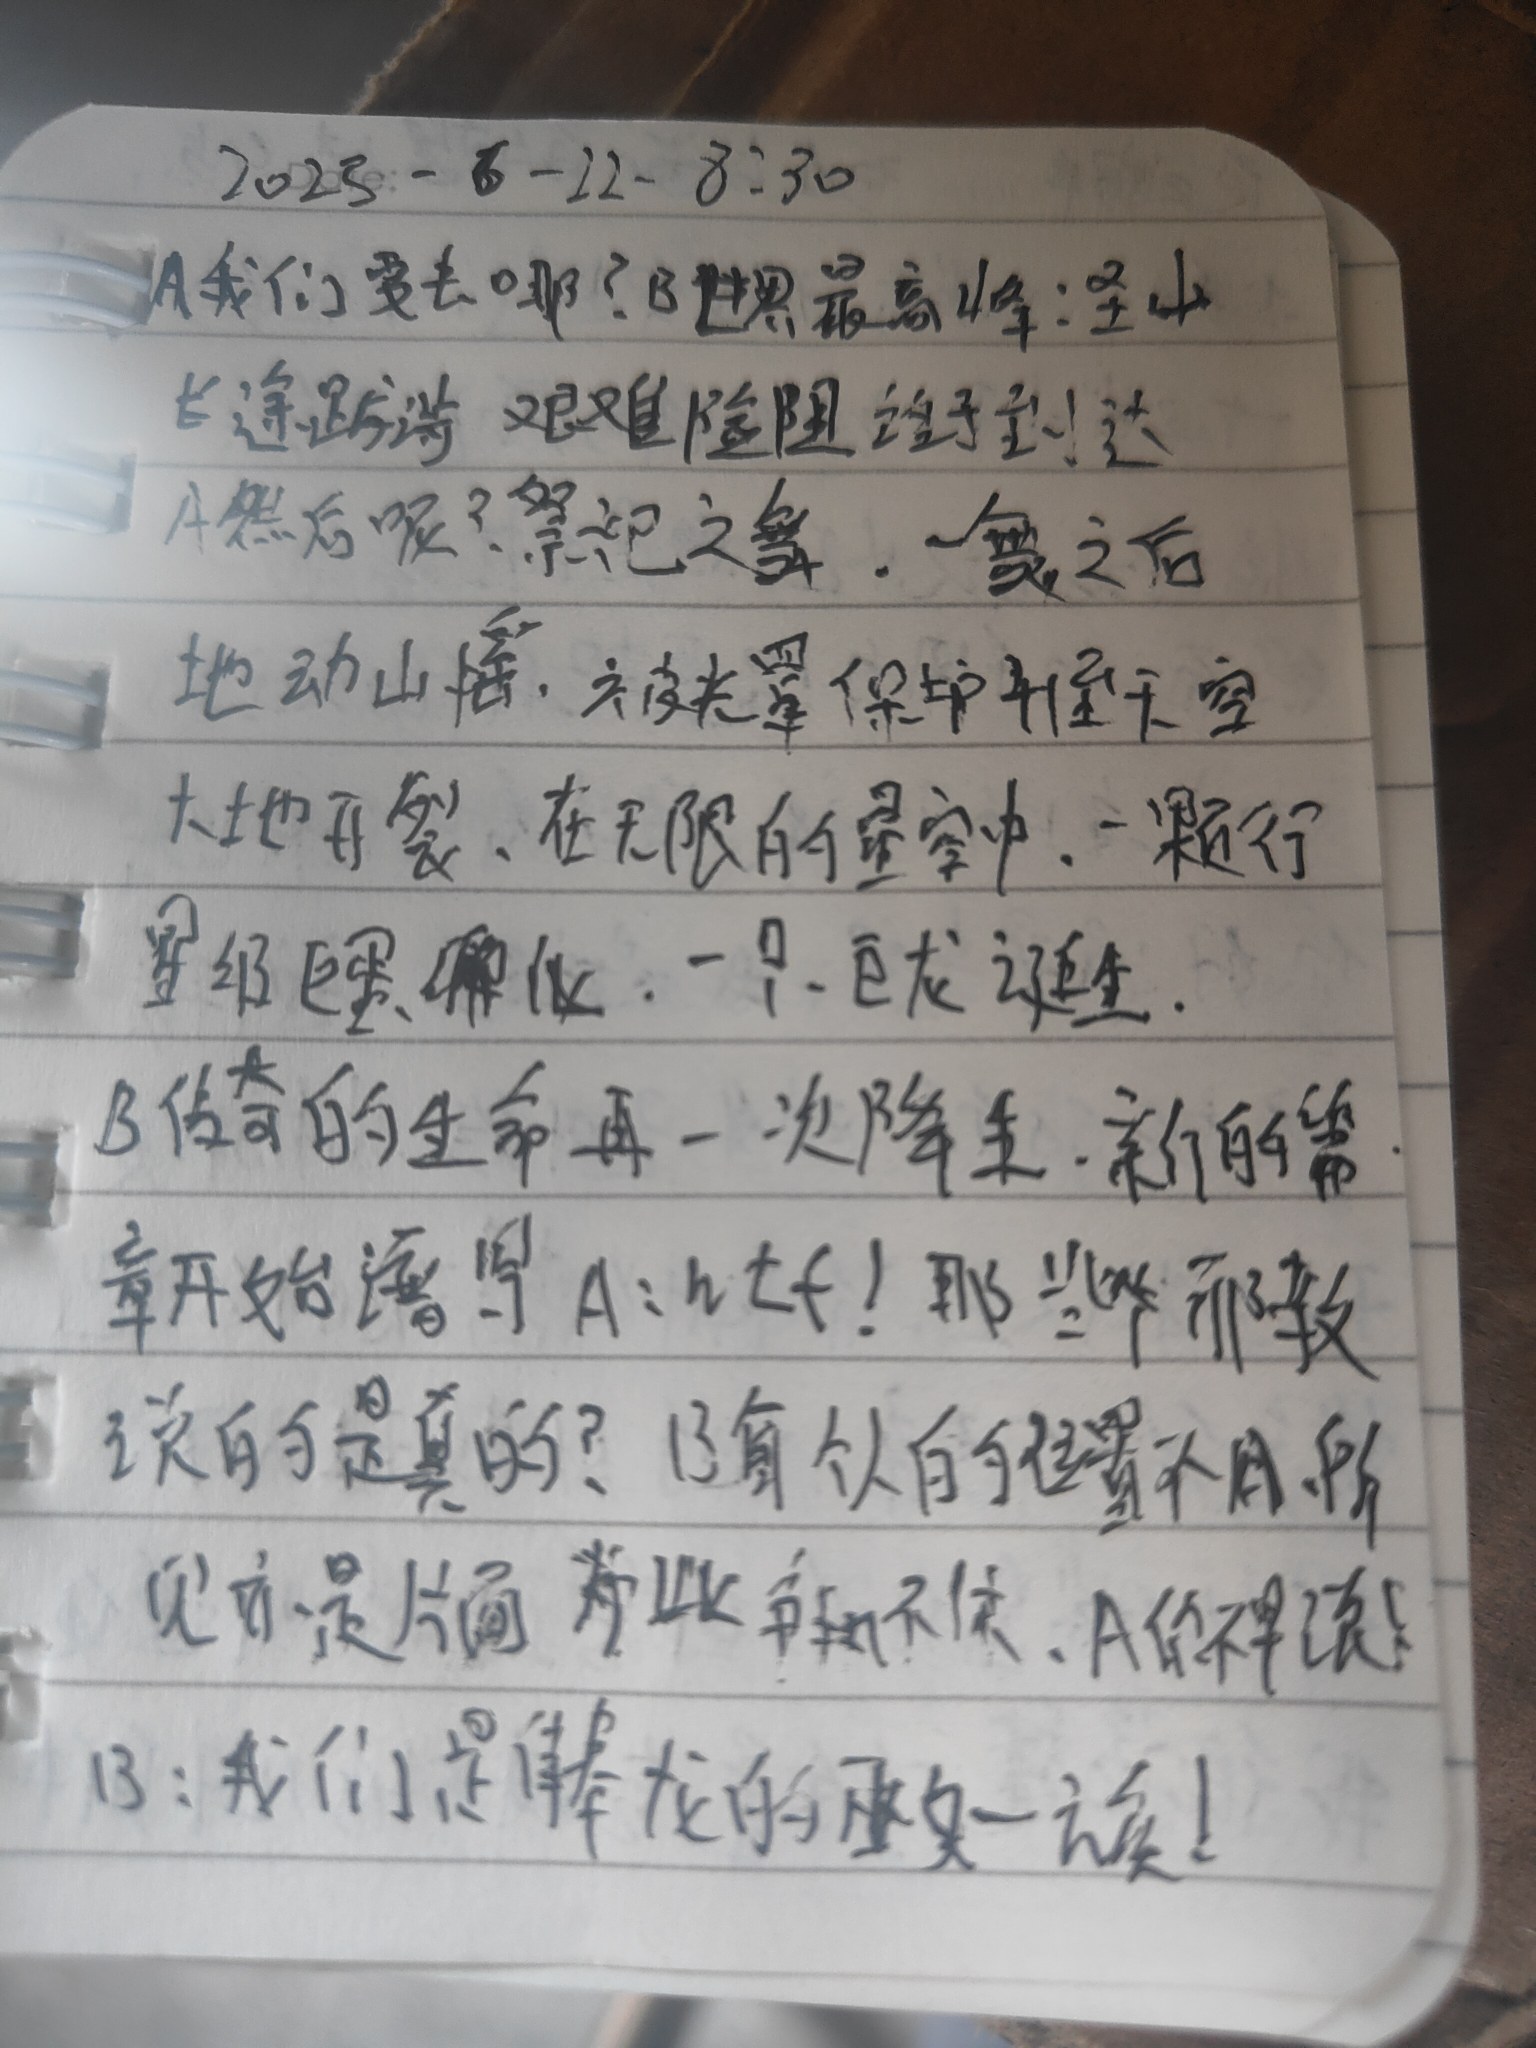 2025-6-22-8:30
A我们要去哪?B世界最高峰:圣山
长途跋涉 艰难险阻 终于到达
A然后呢?祭祀之舞.一舞之后
地动山摇.被光罩保护升至天空
大地开裂、在无限的星空中.一颗行
星级巨蛋孵化.一只巨龙诞生.
B传奇的生命再一次降生.新的篇
章开始谱写 A:wtf!那些邪教
说的是真的?B每个人的位置不同.所
见亦是片面 为此争执不休、A你不早说!
B:我们是侍奉龙的巫女一族!